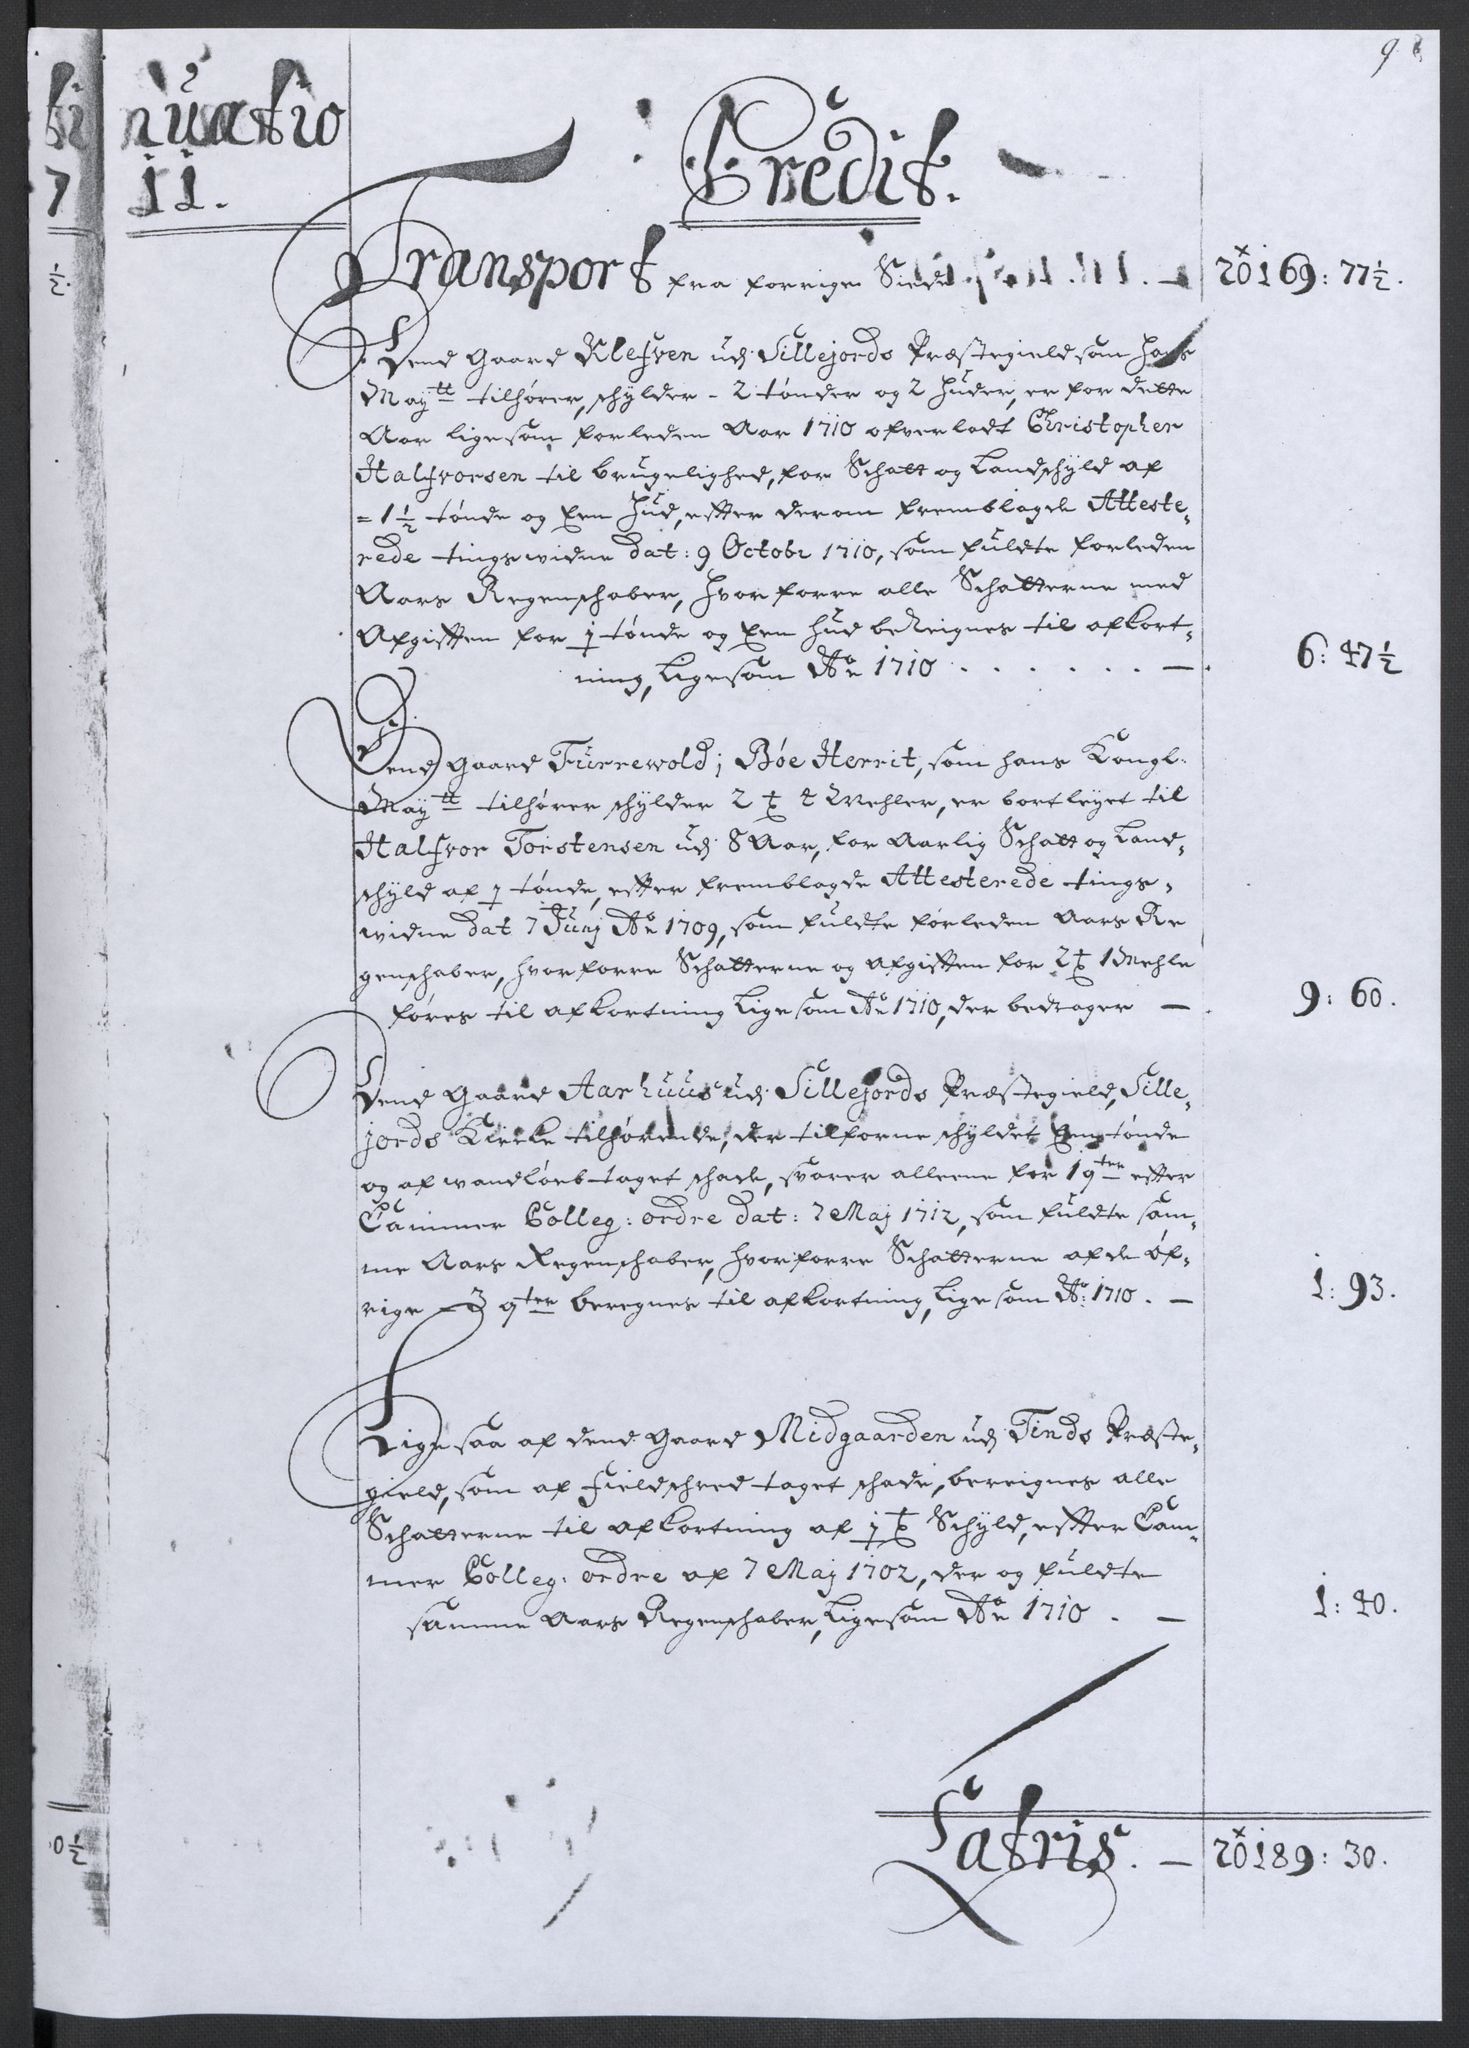 9
nuatio
11.
Credit.
Transport fra forrige Siede — rdr 169: 77½.
Dend Gaard Klefven udj Sillejords Præstegield som Hans
Maytt tilhører, schylder - 2 tønder og 2 huder, er for dette
Aar ligesom forleden Aar 1710 ofverladt Christopher
Halfvorsen til brugelighed, for Schatt og Landschyld af
= 1½ tønde og Een Hud, effter derom fremblagde Atteste-
rede tingswidne dat: 9 Octobr 1710, som fuldte forleden
Aars Regenschaber, hvorforre alle Schatterne med
Afgifften for ½ tønde og Een hud beReignes til afkort-
ning, Ligesom Ao 1710 . . . . . . — 6: 47½
Dend Gaard Furrewold j Bøe Herrit, som hans Kongl:
Maytt tilhører schylder 2 t 2 Mehler, er bortleyet til
Halfvor Torstensen udj 8 Aar, for Aarlig Schatt og Land-
schyld af ½ tønde, effter fremblagde Attesterede tings-
widne dat 7 Junj Ao 1709, som fuldte forleden Aars Re
genschaber, hvorforre Schatterne og afgifften for 2 t 1 Mehle
føres til afkortning Ligesom Ao 1710, der bedrager — 9: 60.
Dend Gaard Aarhuus udj Sillejords Præstegield, Sille-
jords Kircke tilhørende, der tilforne schyldet Een tønde
og af wandløeb taget schade, svarer alleene for 1 qter effter
Cammer Colleg: ordre dat: 7 Maj 1712, som fuldte sam-
me Aars Regenschaber, hvorforre Schatterne af de øf-
rige 3 qter beregnes til afkortning, Ligesom Ao: 1710. — 1: 93.
Lige saa af dend Gaard Midgaarden udj Tinds Præste-
gield, som af Fieldschred taget schade, bereignes alle
Schatterne til afkortning af ½ t Schyld, effter Cam-
mer Colleg: ordre af 7 Maj 1702, der og fuldte
samme Aars Regenschaber, Ligesom Ao 1710 . — 1: 40.
Latris. — rdr 189: 30.